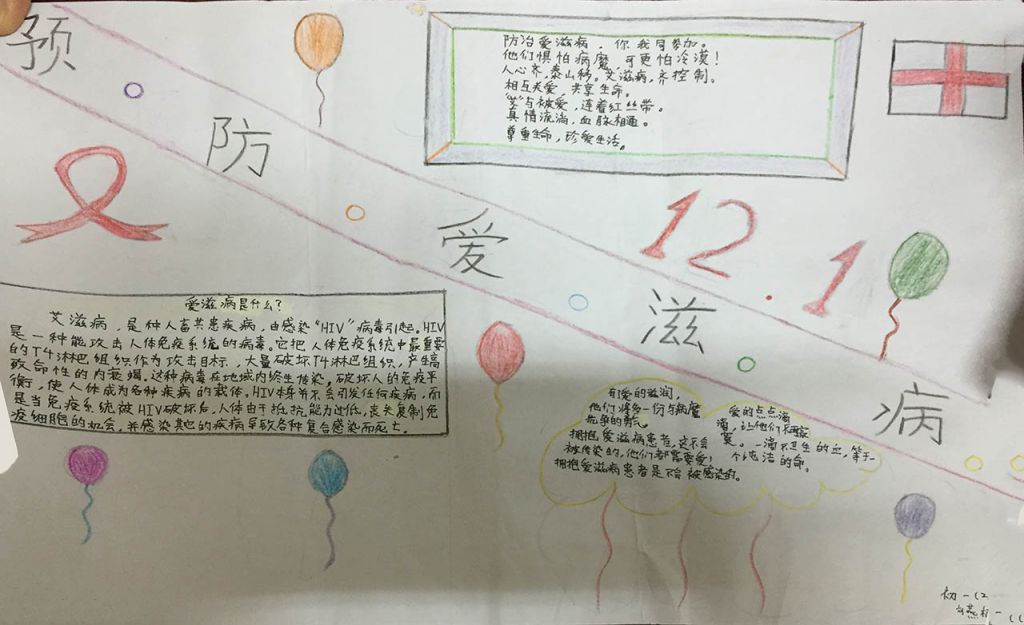 预防爱滋病
防治爱滋病，你我同参加。
他们惧怕病魔，可更怕冷漠！
人心齐，泰山移。艾滋病，齐控制。
相互关爱，共享生命。
"艾"与被爱，连着红丝带。
真情流淌，血脉相通。
尊重生命，珍爱生活。
12.1
爱滋病是什么？
艾滋病，是种人畜共患疾病，由感染"HIV"病毒引起。HIV
是一种能攻击人体免疫系统的病毒。它把人体免疫系统中最重要
的T4淋巴组织作为攻击目标，大量破坏T4淋巴组织，产生高
致命性的内衰竭。这种病毒在地域内终生传染，破坏人的免疫平
衡，使人体成为各种疾病的载体。HIV本身并不会引发任何疾病，而
是当免疫系统被HIV破坏后，人体由于抵抗能力过低，丧失复制免
疫细胞的机会，并感染其他的疾病导致各种复合感染而死亡。
可爱的滋润，
他们将多一份与病魔
抗争的勇气。
拥抱爱滋病患者，这不会
被传染的，他们都需要爱！
拥抱爱滋病患者是不会被感染的。
爱的点点滴
滴，让他们不再寂
寞。一滴不卫生的血，等于一
个纯洁的命。
初一12